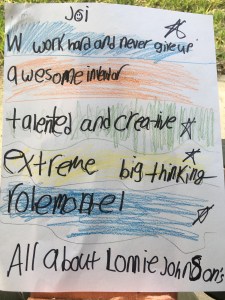 Joi
W work hard and never give up
awesome inventor
talented and creative
extreme big thinking
rolemottel
All about Lonnie Johnson's